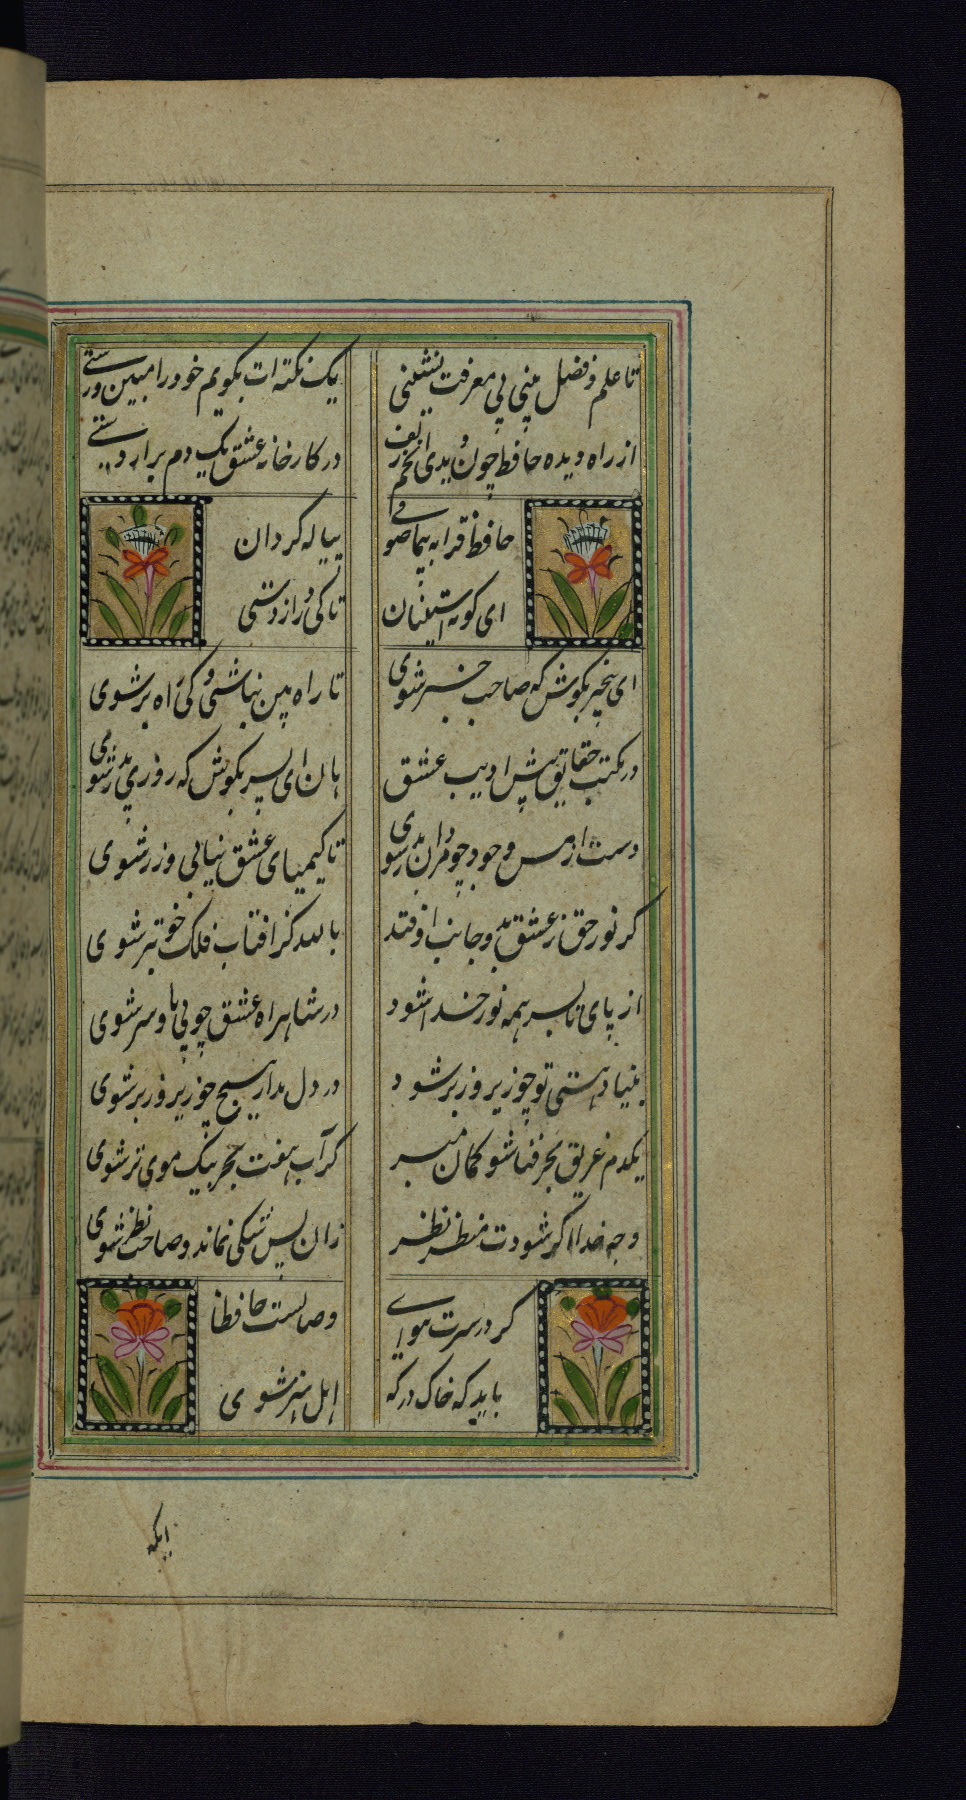 تا علم و فضل بینی بی معرفت نشینی
یک نکته ات بگویم خود را مبین و رستی
از راه دیده حافظ چون دیدی زلف
در کارخانه عشق یک دم برار دستی
حافظ قرابه پیما صوفی
پیاله گردان
ای کوته آستینان
تا کی دراز دستی
ای بیخبر بکوش که صاحب خبر شوی
تا راه بین نباشی و کی راه بر شوی
در مکتب حقایق پیش ادیب عشق
هان ای پسر بکوش که روزی پدر شوی
دست از مس وجود چو مردان بدر شوی
تا کیمیای عشق نیابی و زر شوی
گر نور حق ز عشق بد و جانب اوفتد
بالله کز افتاب فلک خوتبر شوی
از پای تا بسر همه نور خدا شود
در شاهراه عشق چو بی پا و سر شوی
بنیاد هستی تو چو زیر و زبر شود
در دل مدار هیچ چو زیر و زبر شوی
یکدم غریق بحر فنا شو گمان مبر
کز آب هفت بحر بیک موی تر شوی
وجه خدا اگر شودت منظر نظر
زان پس شکی نماند و صاحب نظر شوی
گر در سرت هوای
وصالست حافظا
باید که خاک درگه
اهل هنر شوی
ایکه